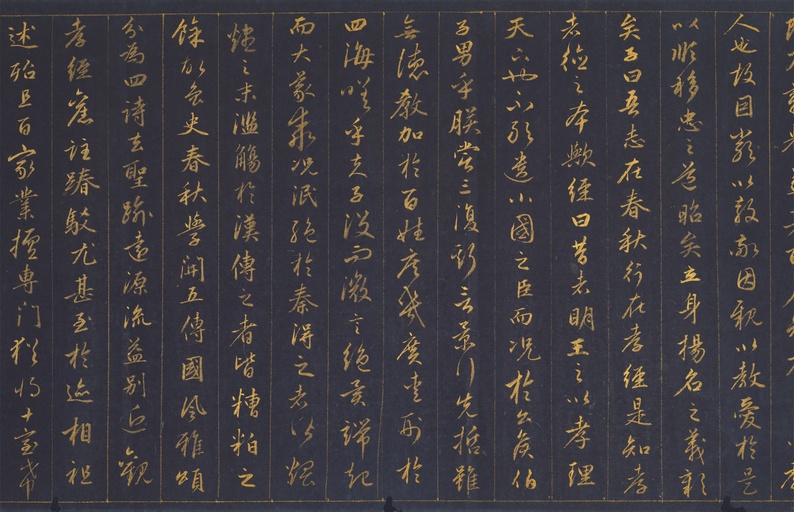 人也故因嚴以教敬因親以教愛於是
以順移忠之道昭矣立身揚名之義彰
矣子曰吾志在春秋行在孝經是知孝
者德之本歟經曰昔者明王之以孝理
天下也不敢遺小國之臣而況於公侯伯
子男乎朕嘗三復斯言景行先哲雖
無德教加於百姓庶幾廣愛形於
四海嗟乎夫子沒而微言絕異端起
而大義乖況泯絕於秦得之者皆煨
燼之末濫觴於漢傳之者皆糟粕之
餘故魯史春秋學開五傳國風雅頌
分為四詩去聖逾遠源流益別近觀
孝經舊註踳駮尤甚至於跡相祖
述殆且百家業擅專門猶將十室希